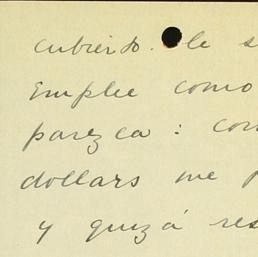 cubierto. le s
Emplee como
parezca: con
dollars me p
y quizá res